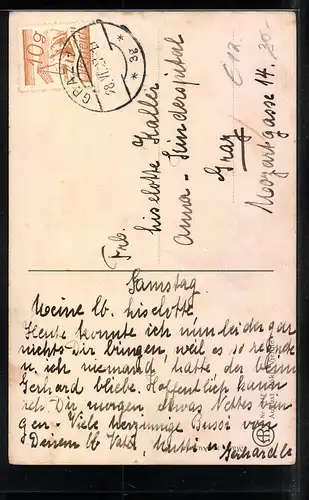 10g
GRAZ
28.VI.
* 3g *
Frl.
Liselotte Haller
Anna-Kinderspital
Graz
Mozartgasse 14.
20-
Samstag
Meine lb. Liselotte
Heute konnte ich nun leider gar
nichts Dir bringen, weil es so regnete
u. ich niemand hatte, der beim
Gerhard bliebe. Hoffentlich kann
ich Dir morgen etwas Nettes brin-
gen. Viele herzinnige Bussi von
Deinem lb Vater, Mutti u Gerhardle